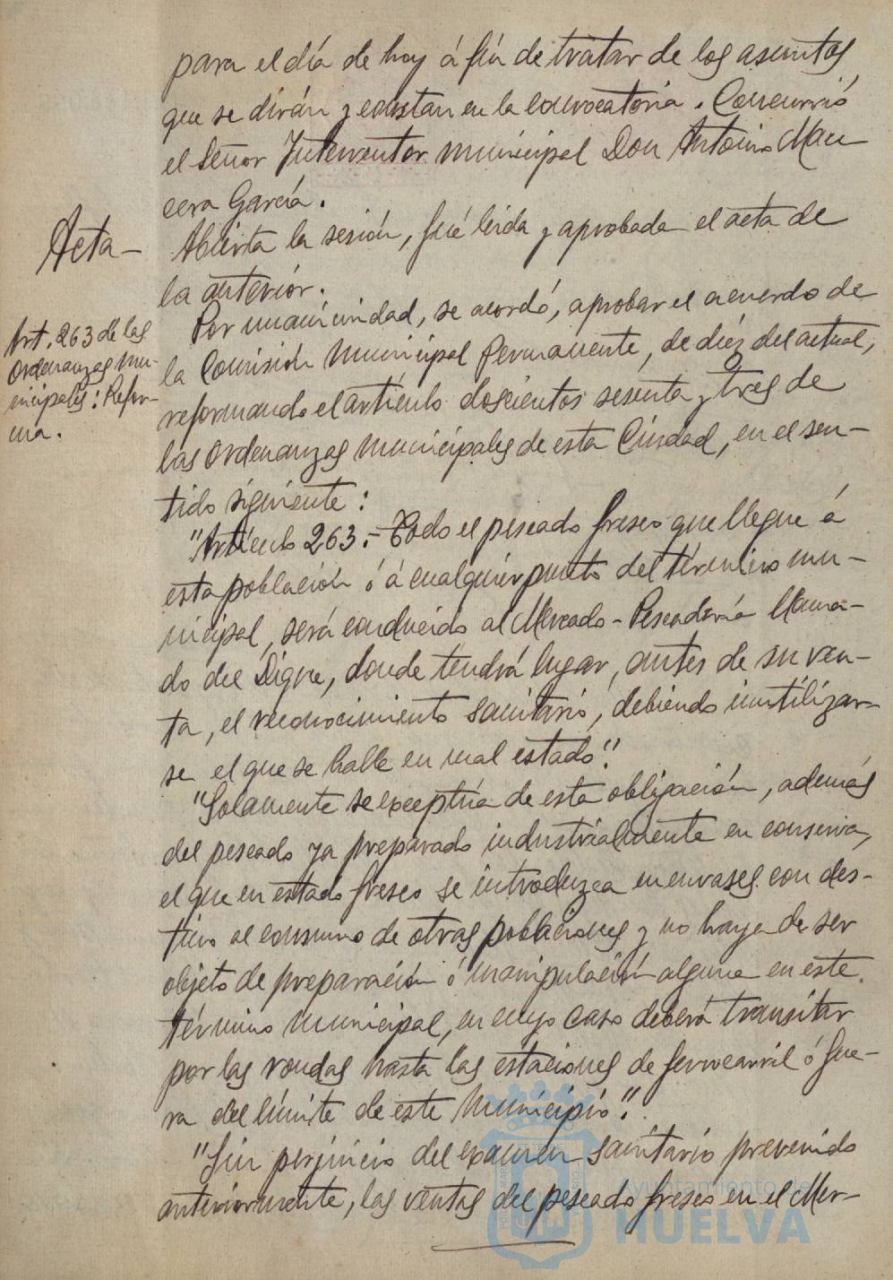 para el día de hoy á fin de tratar de los asuntos
que se dirán y constan en la convocatoria. Concurrió
el Señor Interventor municipal Don Antonio Man
cera García.
Acta—
Abierta la sesión, fué leida y aprobada el acta de
la anterior.
Art. 263 de las
Ordenanzas Mu-
nicipales: Refor-
ma.
Por unanimidad, se acordó, aprobar el acuerdo de
la Comisión Municipal Permanente, de diez del actual,
reformando el artículo doscientos sesenta y tres de
las Ordenanzas municipales de esta Ciudad, en el sen-
tido siguiente:
"Artículo 263.- Todo el pescado fresco que llegue á
esta población ó á cualquier punto del término mu-
nicipal, será conducido al Mercado-Pescadería llama-
do del Dique, donde tendrá lugar, antes de su ven-
ta, el reconocimiento sanitario, debiendo inutilizar-
se el que se halle en mal estado."
"Solamente se exceptúa de esta obligación, además
del pescado ya preparado industrialmente en conserva,
el que en estado fresco se introduzca en envases con des-
tino al consumo de otras poblaciones y no haya de ser
objeto de preparación ó manipulación alguna en este
término municipal, en cuyo caso deberá transitar
por las rondas hasta las estaciones de ferrocarril ó fue-
ra del límite de este Municipio."
"Sin perjuicio del examen sanitario prevenido
anteriormente, las ventas del pescado fresco en el Mer-
Ayuntamiento de
HUELVA